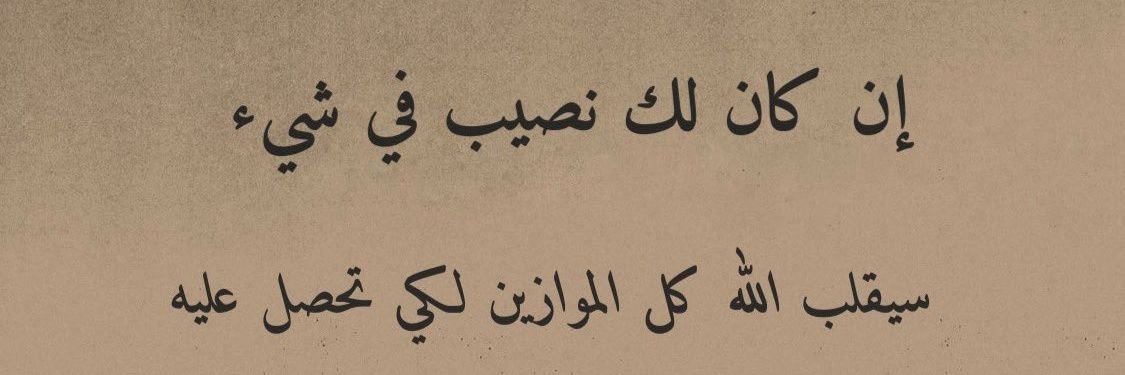 إن كان لك نصيب في شيء
سيقلب الله كل الموازين لكي تحصل عليه